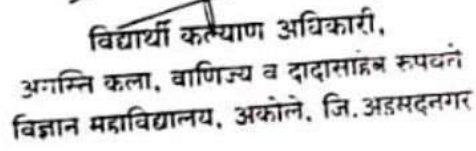 विद्यार्थी कल्याण अधिकारी,
अगस्ति कला, वाणिज्य व दादासाहेब रुपवते
विज्ञान महाविद्यालय, अकोले, जि.अहमदनगर